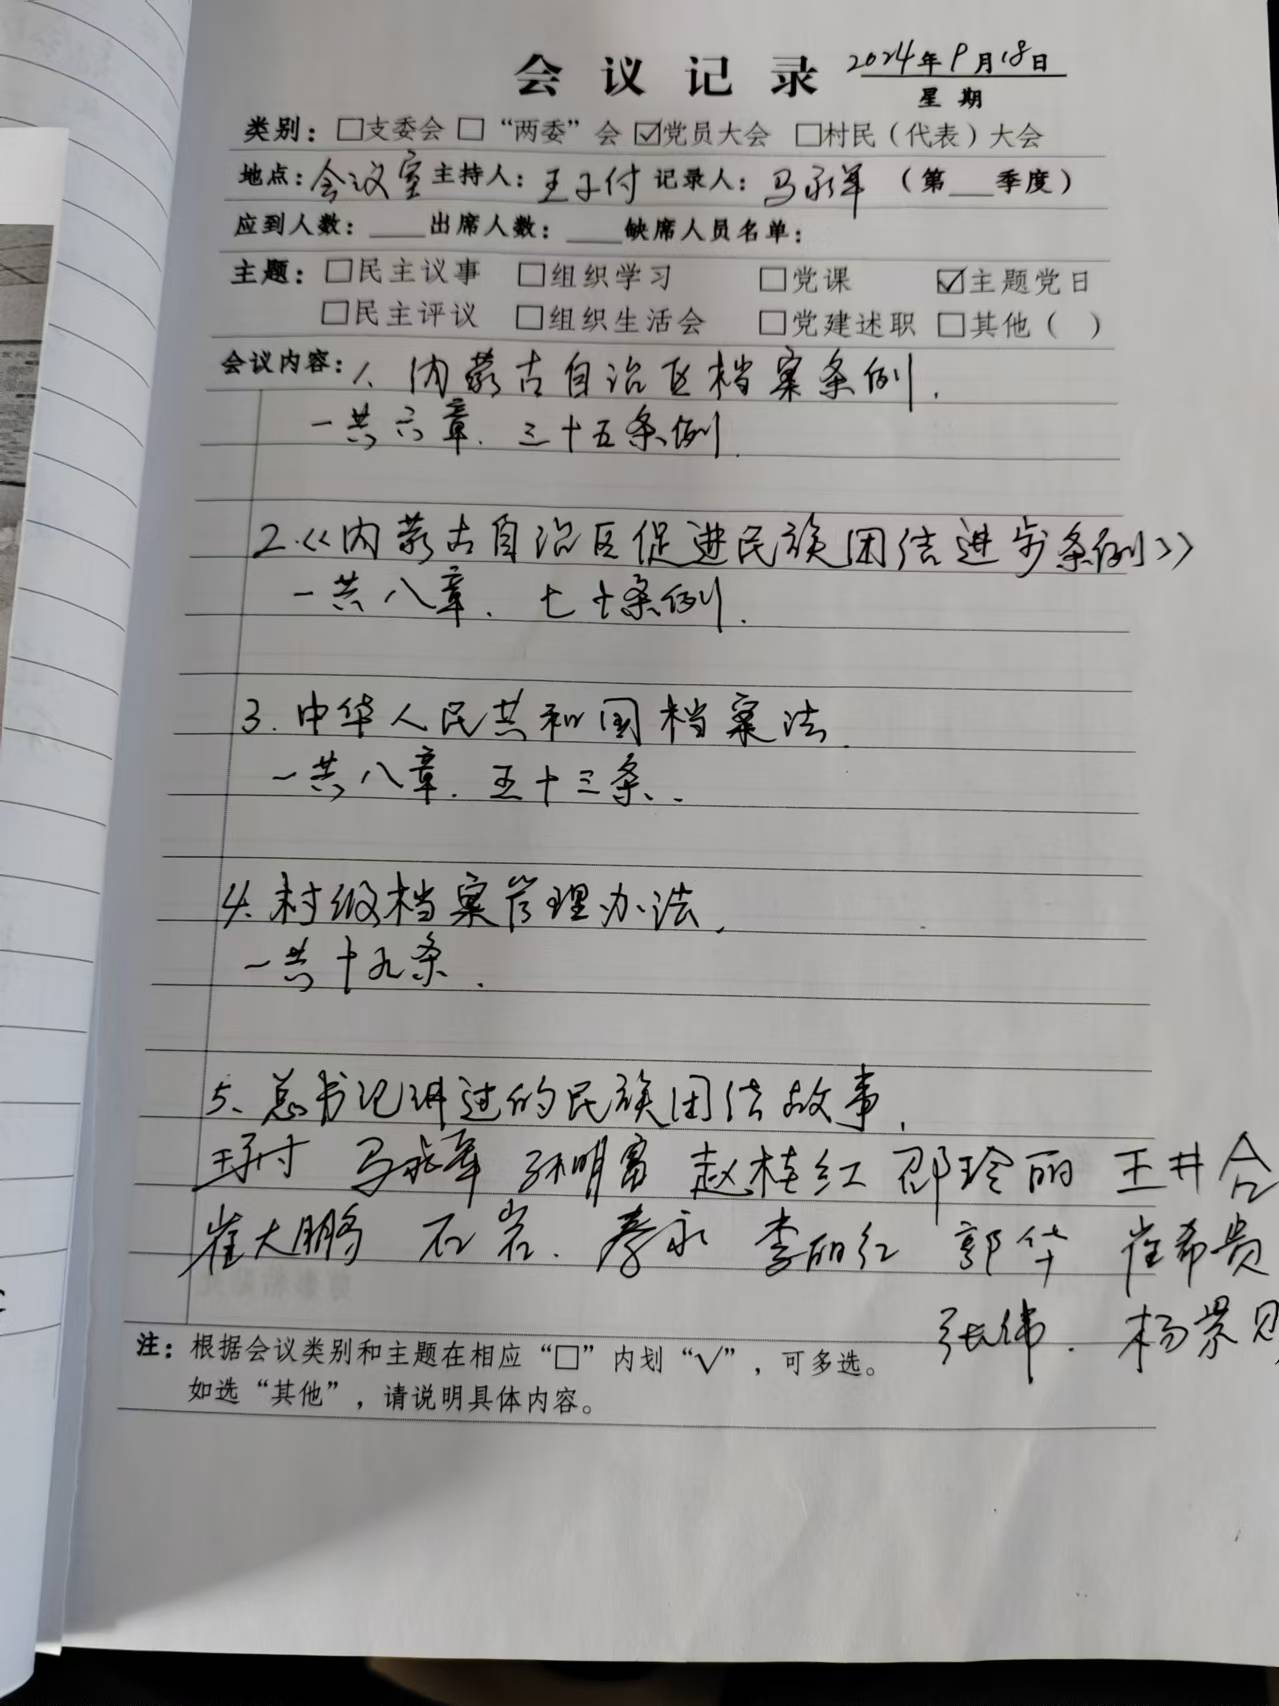 会议记录 2024年9月18日
星期
类别：□支委会 □“两委”会 ☑党员大会 □村民（代表）大会
地点：会议室 主持人：王子付 记录人：马永军 （第___季度）
应到人数：____出席人数：____缺席人员名单：
主题：□民主议事 □组织学习 □党课 ☑主题党日
□民主评议 □组织生活会 □党建述职 □其他（ ）
会议内容：1、内蒙古自治区档案条例.
一共六章. 三十五条例.
2.《内蒙古自治区促进民族团结进步条例》
一共八章. 七十条例.
3.中华人民共和国档案法.
一共八章. 五十三条.
4.村级档案管理办法.
一共十九条.
5、总书记讲过的民族团结故事.
王子付 马永军 孙明富 赵桂红 邵玲丽 王井合
崔大鹏 石岩. 秦永 李丽红 郭华 崔希贵
张伟. 杨景
注：根据会议类别和主题在相应“□”内划“√”，可多选。
如选“其他”，请说明具体内容。